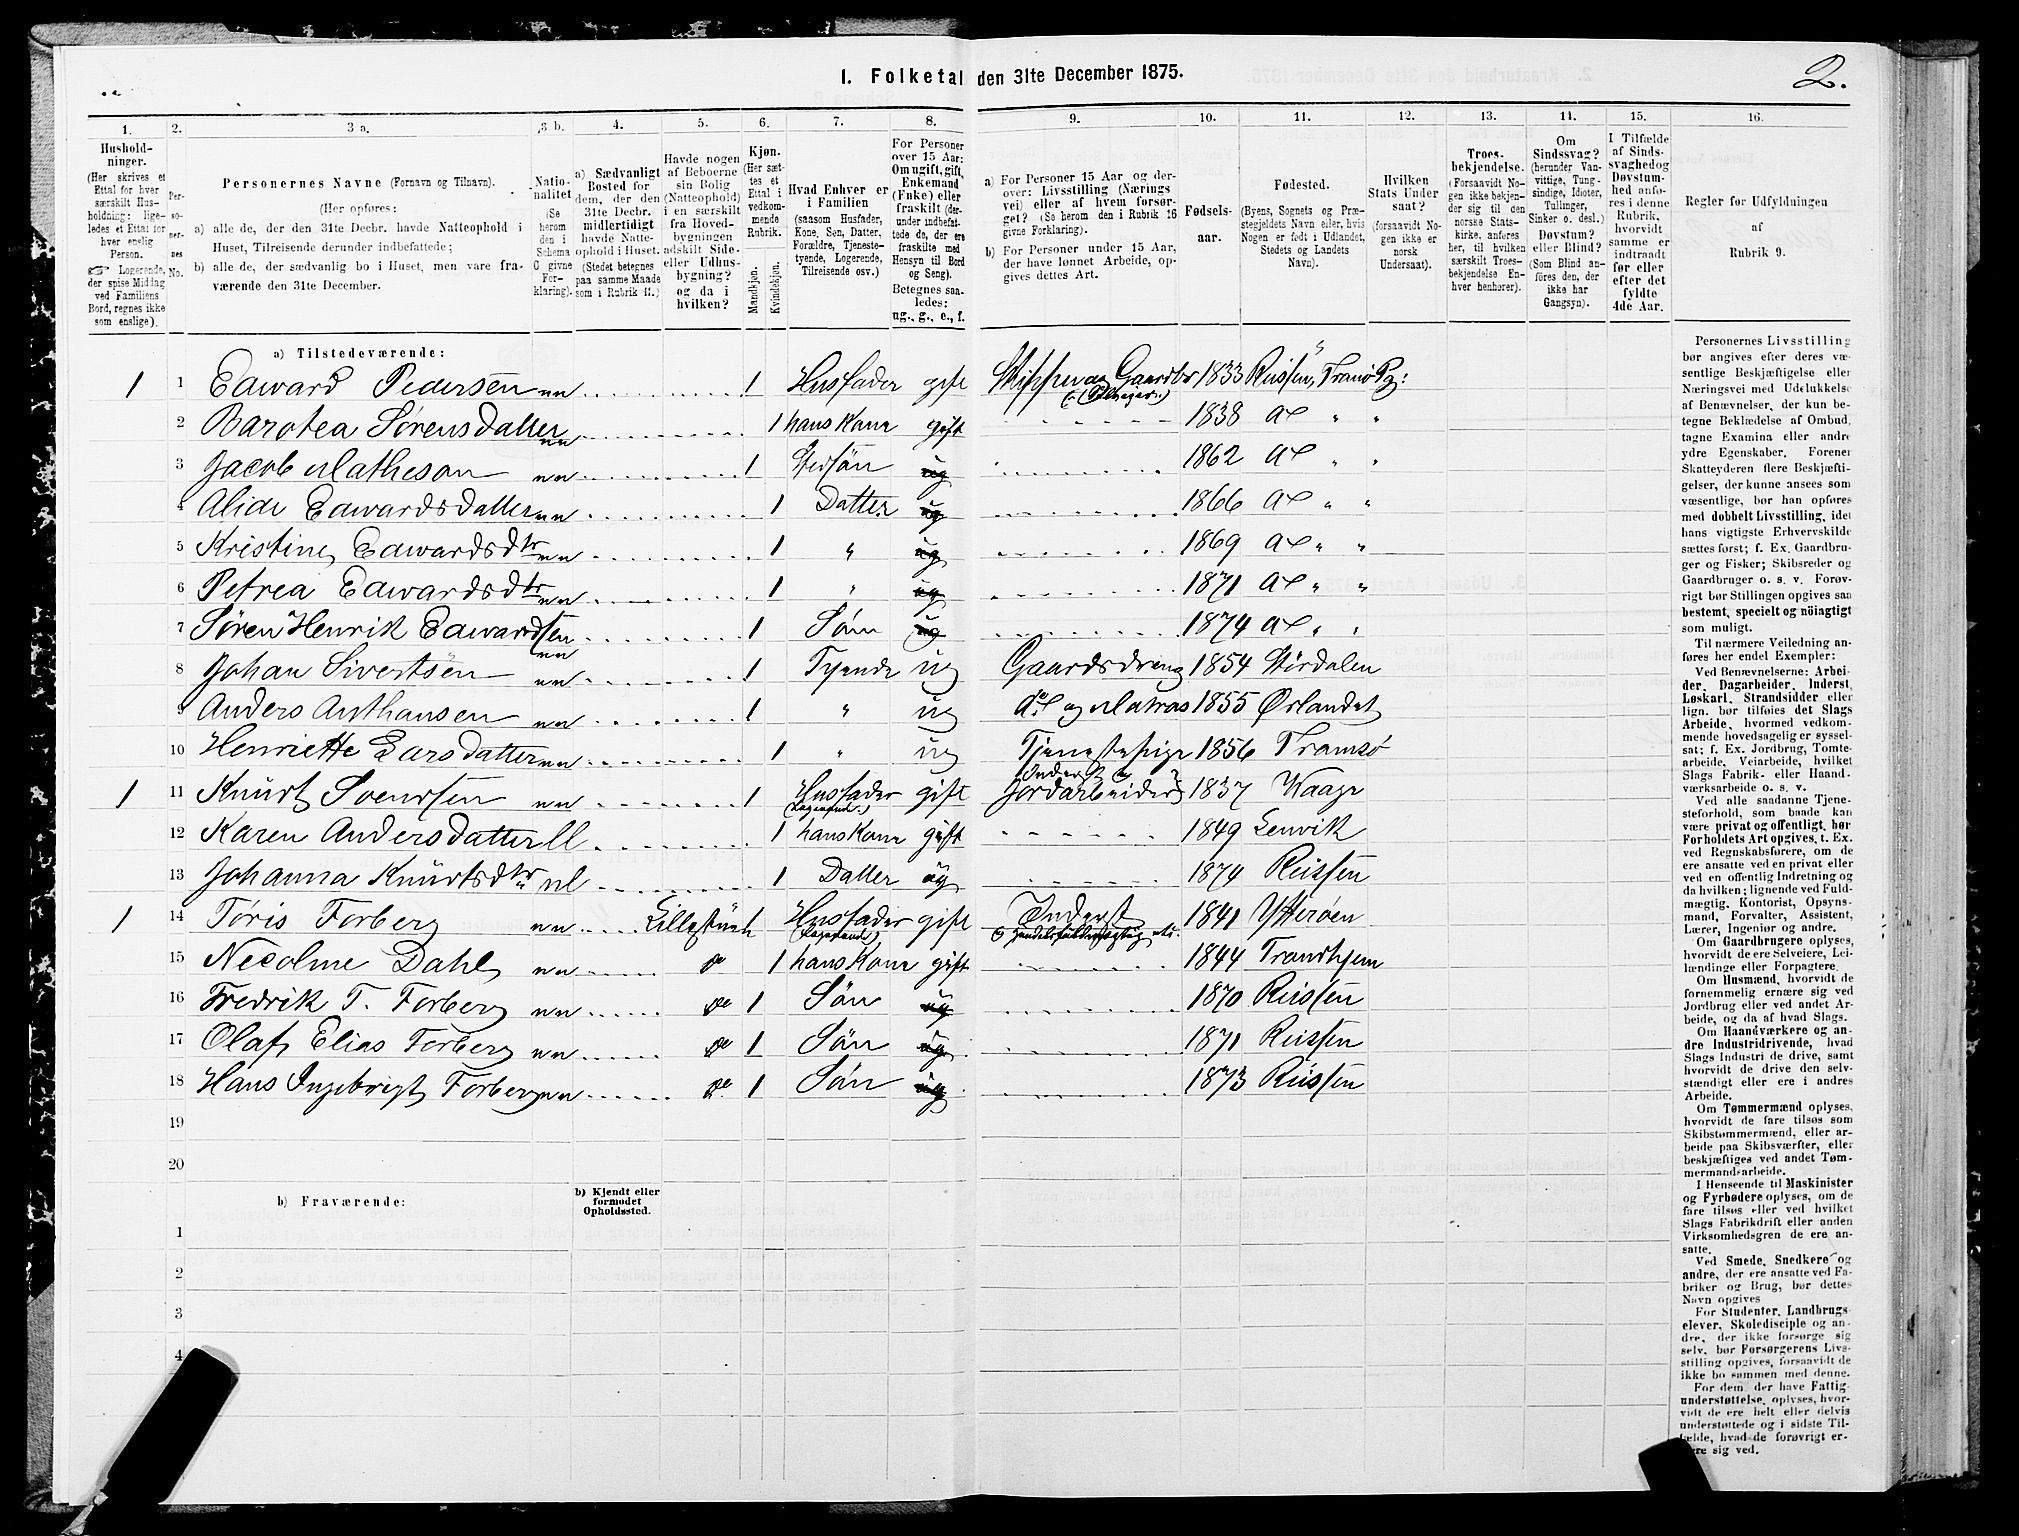 I. Folketal den 31te December 1875.
2.
1. 2. 3 a. 3 b. 4. 5. 6. 7. 8. 9. 10. 11. 12. 13. 14. 15. 16.
Hushold-
ninger.
(Her skrives et
Ettal for hver
særskilt Hus-
holdning; lige-
ledes et Ettal for
hver enslig
Person.
☞ Logerende,
der spise Middag
ved Familiens
Bord, regnes ikke
som enslige).
Per-
so-
ner-
nes
No.
Personernes Navne (Fornavn og Tilnavn).
(Her opføres:
a) alle de, der den 31te Decbr. havde Natteophold i
Huset, Tilreisende derunder indbefattede;
b) alle de, der sædvanlig bo i Huset, men vare fra-
værende den 31te December.
Natio-
nalitet
(Se
herom
den i
Schema
6 givne
For-
klaring).
a) Sædvanligt
Bosted for
dem, der den
31te Decbr.
midlertidigt
havde Natte-
ophold i Huset.
(Stedet betegnes
paa samme Maade
som i Rubrik 11.)
Havde nogen
af Beboerne
sin Bolig
(Natteophold)
i en særskilt
fra Hoved-
bygningen
adskilt Side-
eller Udhus-
bygning?
og da i
hvilken?
Kjøn.
(Her sæt-
tes et
Ettal i
vedkom-
mende
Rubrik.
Mandkjøn.
Kvindekjøn.
Hvad Enhver er
i Familien
(saasom Husfader,
Kone, Søn, Datter,
Forældre, Tjeneste-
tyende, Logerende,
Tilreisende osv.)
For Personer
over 15 Aar:
Om ugift, gift,
Enkemand
(Enke) eller
fraskilt (der-
under indbefat-
tede de, der ere
fraskilte med
Hensyn til Bord
og Seng).
Betegnes saa-
ledes:
ug., g., e., f.
a) For Personer 15 Aar og der-
over: Livsstilling (Nærings
vei) eller af hvem forsør-
get? (Se herom den i Rubrik 16
givne Forklaring).
b) For Personer under 15 Aar,
der have lønnet Arbeide, op-
gives dettes Art.
Fødsels-
aar.
Fødested.
(Byens, Sognets og Præ-
stegjeldets Navn eller, hvis
Nogen er født i Udlandet,
Stedets og Landets
Navn).
Hvilken
Stats Under
saat?
(forsaavidt No-
gen ikke er
norsk
Undersaat).
Troes-
bekjendelse.
(Forsaavidt No-
gen ikke bekjen-
der sig til den
norske Stats-
kirke, anføres
her, til hvilken
særskilt Troes-
bekjendelse En-
hver henhører).
Om
Sindssvag?
(herunder Van-
vittige, Tung-
sindige, Idioter,
Tullinger,
Sinker o. desl.)
Døvstum?
eller Blind?
(Som Blind an-
føres den, der
ikke har
Gangsyn).
I Tilfælde
af Sinds-
svaghed og
Døvstum-
hed anfø-
res i denne
Rubrik,
hvorvidt
samme er
indtraadt
før eller
efter det
fyldte
4de Aar.
Regler for Udfyldningen
af
Rubrik 9.
a) Tilstedeværende:
1 1 Edward Pedersen nn 1 Husfader gift Skipper og Gaardbr 1833 Reissen, Tranø Pg:
2 Barotea Sørensdatter nn 1 hans Kone gift 1838 do " "
3 Jacob Mathesøn nn 1 Stedsøn ug 1862 do " "
4 Alide Edwardsdatter nn 1 Datter ug 1866 do " "
5 Kristine Edwardsdtr nn 1 " ug 1869 do " "
6 Petrea Edwardsdtr nn 1 " ug 1871 do " "
7 Søren Henrik Edwardsen nn 1 Søn ug 1874 do " "
8 Johan Sivertsen nn 1 Tyende ug Gaardsdreng 1854 Størdalen
9 Anders Anthonsen nn 1 " ug do og Matros 1855 Ørlandet
10 Henriette Larsdatter nn 1 " ug Tjenestepige 1856 Tromsø
1 11 Knurt Svendsen nn 1 Husfader (Logerende) gift Inderst og Jordarbeider 1837 Waage
12 Karen Andersdatter ll 1 hans Kone gift 1849 Lenvik
13 Johanna Knurtsdtr nl 1 Datter ug 1874 Reissen
1 14 Tøris Forberg nn Lillestuen 1 Husfader (Logerende) gift Inderst 1841 Ytterøen
15 Necoline Dahl nn do 1 hans Kone gift 1844 Trondhjem
16 Fredrik T. Forberg nn do 1 Søn ug 1870 Reissen
17 Olaf Elias Forberg nn do 1 Søn ug 1871 Reissen
18 Hans Ingebrigt Forberg nn do 1 Søn ug 1873 Reissen
19
20
b) Fraværende:
b) Kjendt eller
formodet
Opholdssted.
1
2
3
4
Personernes Livsstilling
bør angives efter deres væ-
sentlige Beskjæftigelse eller
Næringsvei med Udelukkelse
af Benævnelser, der kun be-
tegne Beklædelse af Ombud,
tagne Examina eller andre
ydre Egenskaber. Forener
Skatteyderen flere Beskjæfti-
gelser, der kunne ansees som
væsentlige, bør han opføres
med dobbelt Livsstilling, idet
hans vigtigste Erhvervskilde
sættes først; f. Ex. Gaardbru-
ger og Fisker; Skibsreder og
Gaardbruger o. s. v. Forøv-
rigt bør Stillingen opgives saa
bestemt, specielt og nöiagtigt
som muligt.
Til nærmere Veiledning an-
føres her endel Exempler:
Ved Benævnelserne: Arbei-
der, Dagarbeider, Inderst,
Løskarl, Strandsidder eller
lign. bør tilføies det Slags
Arbeide, hvormed vedkom-
mende hovedsagelig er syssel-
sat; f. Ex. Jordbrug, Tomte-
arbeide, Veiarbeide, hvilket
Slags Fabrik- eller Haand-
værksarbeide o. s. v.
Ved alle saadanne Tjene-
steforhold, som baade kan
være privat og offentligt, bør
Forholdets Art opgives, t. Ex.
ved Regnskabsførere, om de
ere ansatte ved en privat eller
ved en offentlig Indretning og
da hvilken; lignende ved Fuld-
mægtig, Kontorist, Opsyns-
mand, Forvalter, Assistent,
Lærer, Ingeniør og andre.
Om Gaardbrugere oplyses,
hvorvidt de ere Selveiere, Lei-
lændinge eller Forpagtere.
Om Husmænd, hvorvidt de
fornemmelig ernære sig ved
Jordbrug eller ved andet Ar-
beide, og da af hvad Slags.
Om Haandværkere og an-
dre Industridrivende, hvad
Slags Industri de drive, samt
hvorvidt de drive den selv-
stændigt eller ere i andres
Arbeide.
Om Tømmermænd oplyses,
hvorvidt de fare tilsøs som
Skibstømmermænd, eller ar-
beide paa Skibsværfter, eller
beskjæftiges ved andet Tøm-
mermandsarbeide.
I Henseende til Maskinister
og Fyrbødere oplyses, om de
fare tilsøs eller ved hvilket
Slags Fabrikdrift eller anden
Virksomhedsgren de ere an-
satte.
Ved Smede, Snedkere og
andre, der ere ansatte ved Fa-
briker og Brug, bør dettes
Navn opgives
For Studenter, Landbrugs-
elever, Skoledisciple og an-
dre, der ikke forsørge sig
selv, bør Forsørgerens Livs-
stilling opgives, forsaavidt de
ikke bo sammen med denne.
For dem, der have Fattig-
understøttelse, oplyses, hvor-
vidt de ere helt eller delvis
understøttede og i sidste Til-
fælde, hvad de forøvrigt er-
nære sig ved.